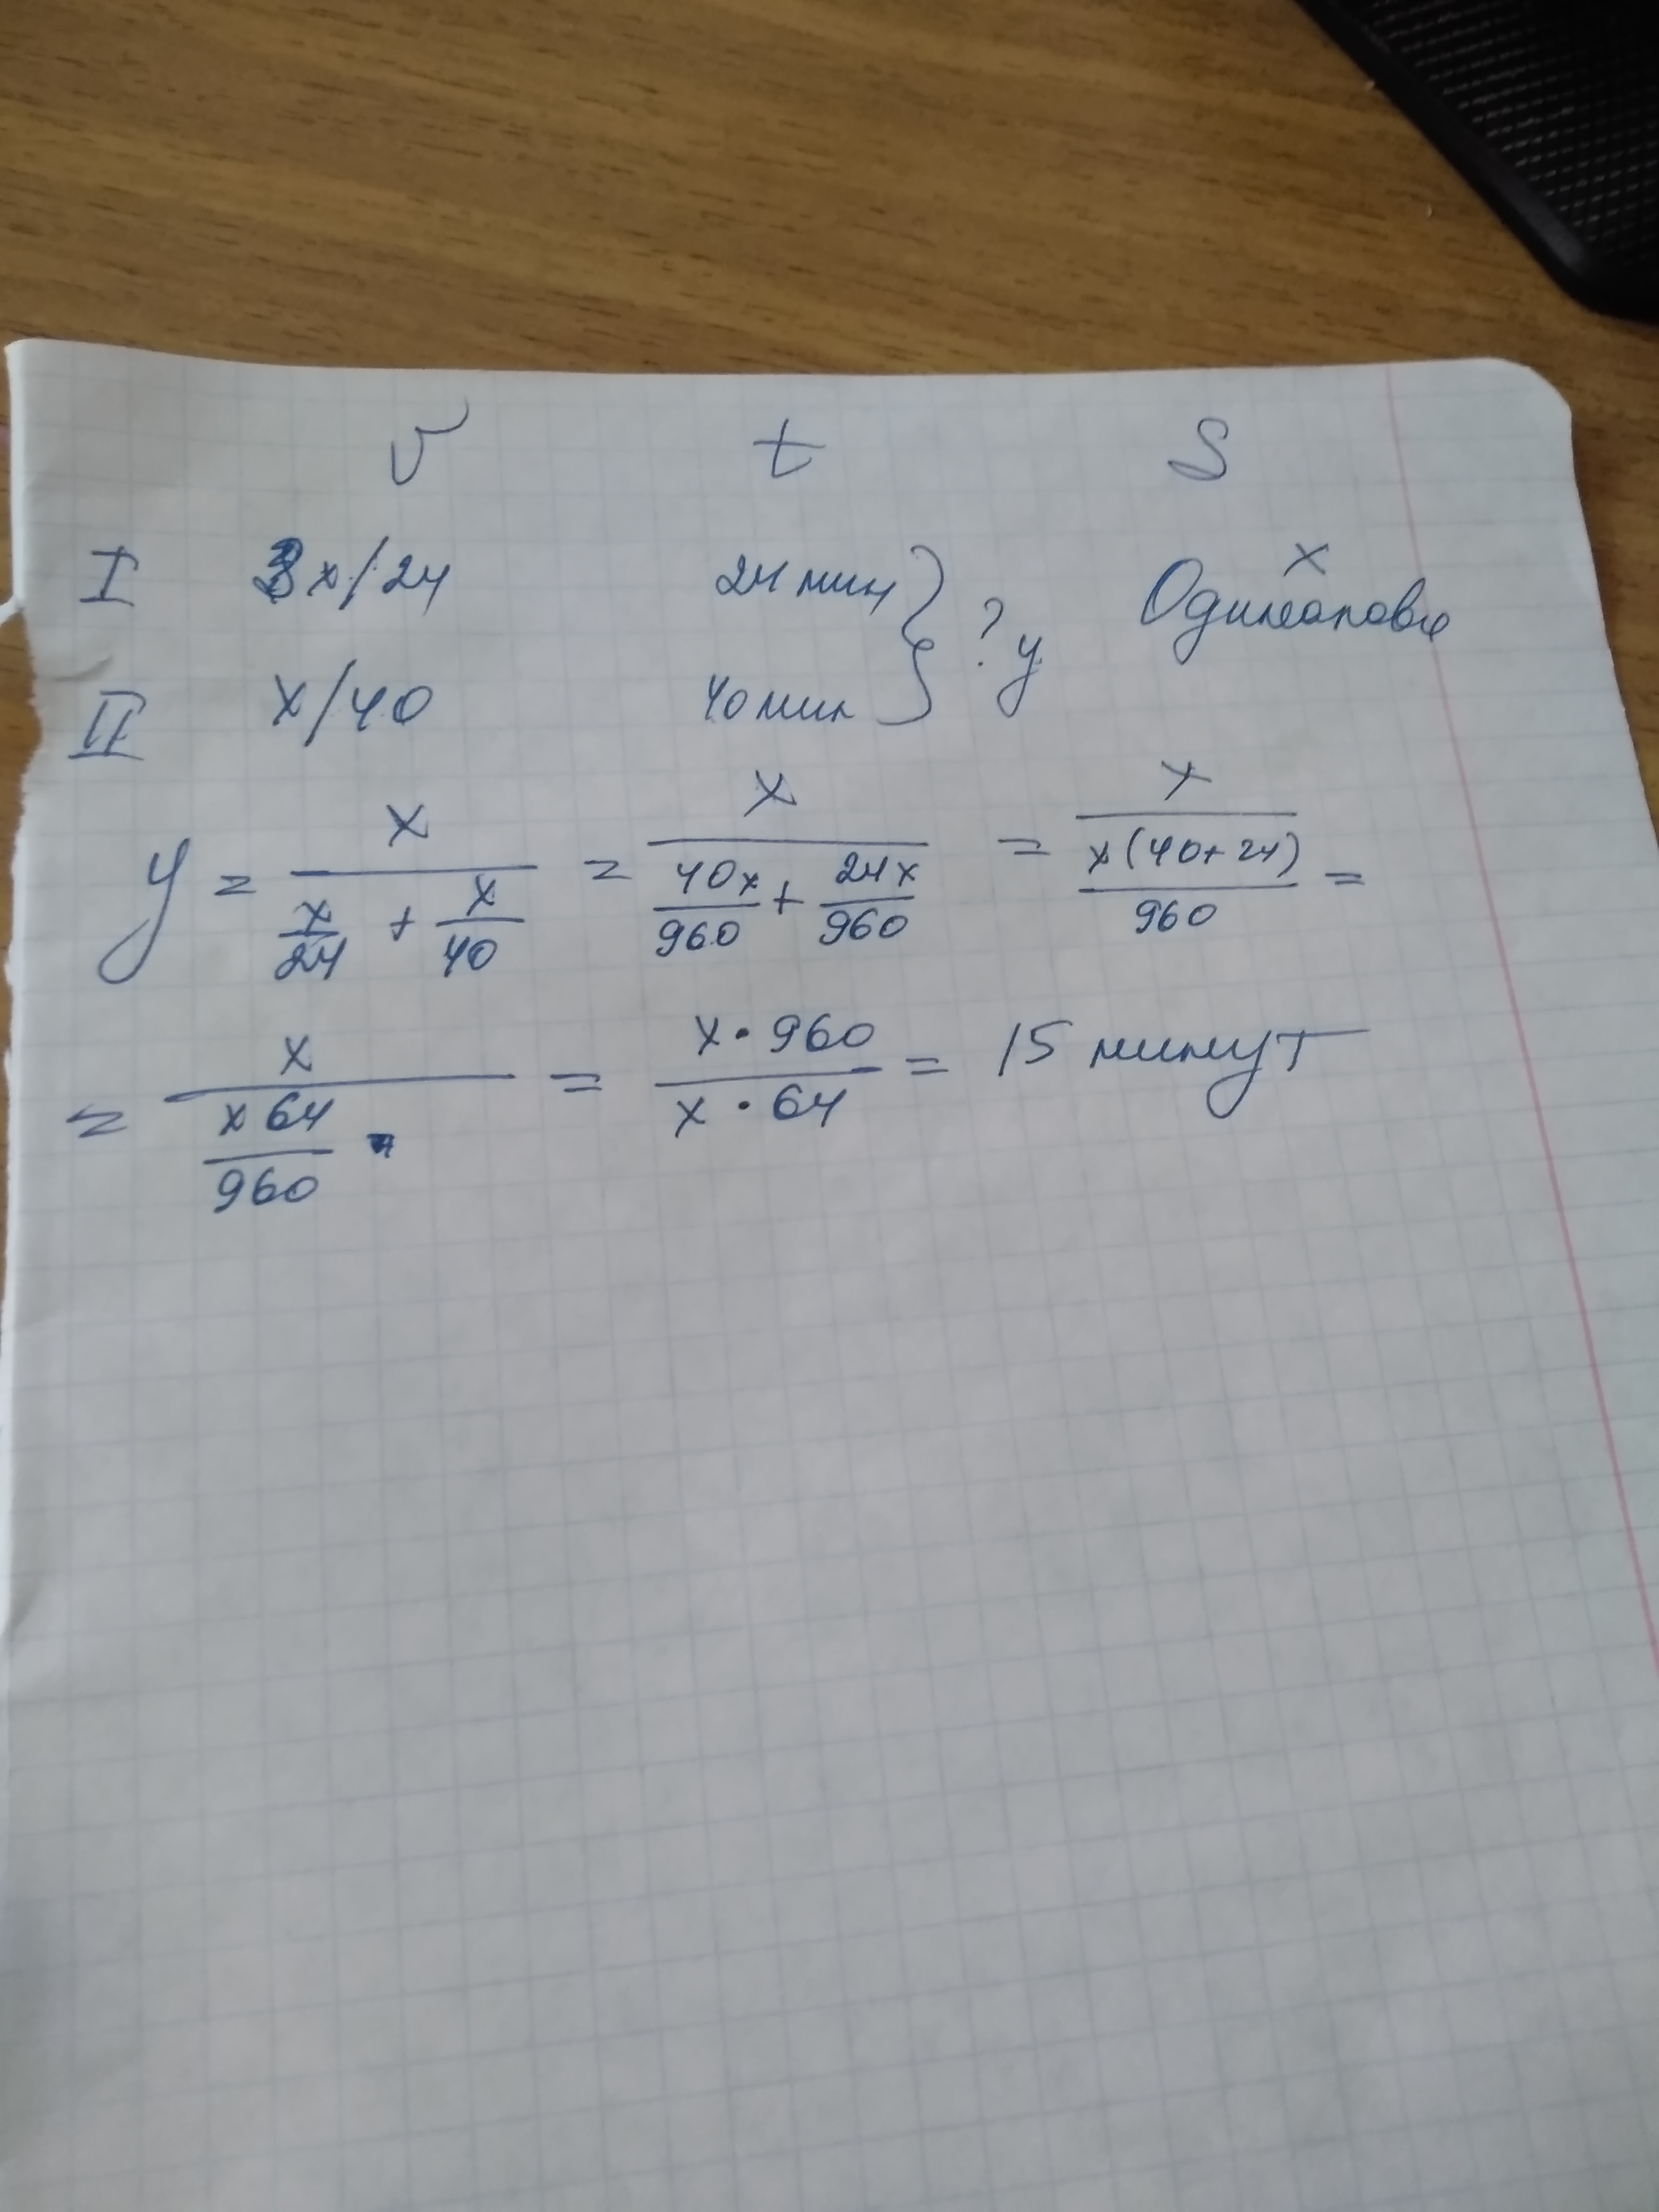 v t S
I x/24 24 мин } ? y x Одинаковы
II x/40 40 мин
y = x / (x/24 + x/40) = x / (40x/960 + 24x/960) = x / (x(40+24)/960) =
= x / (x 64/960) = x · 960 / x · 64 = 15 минут